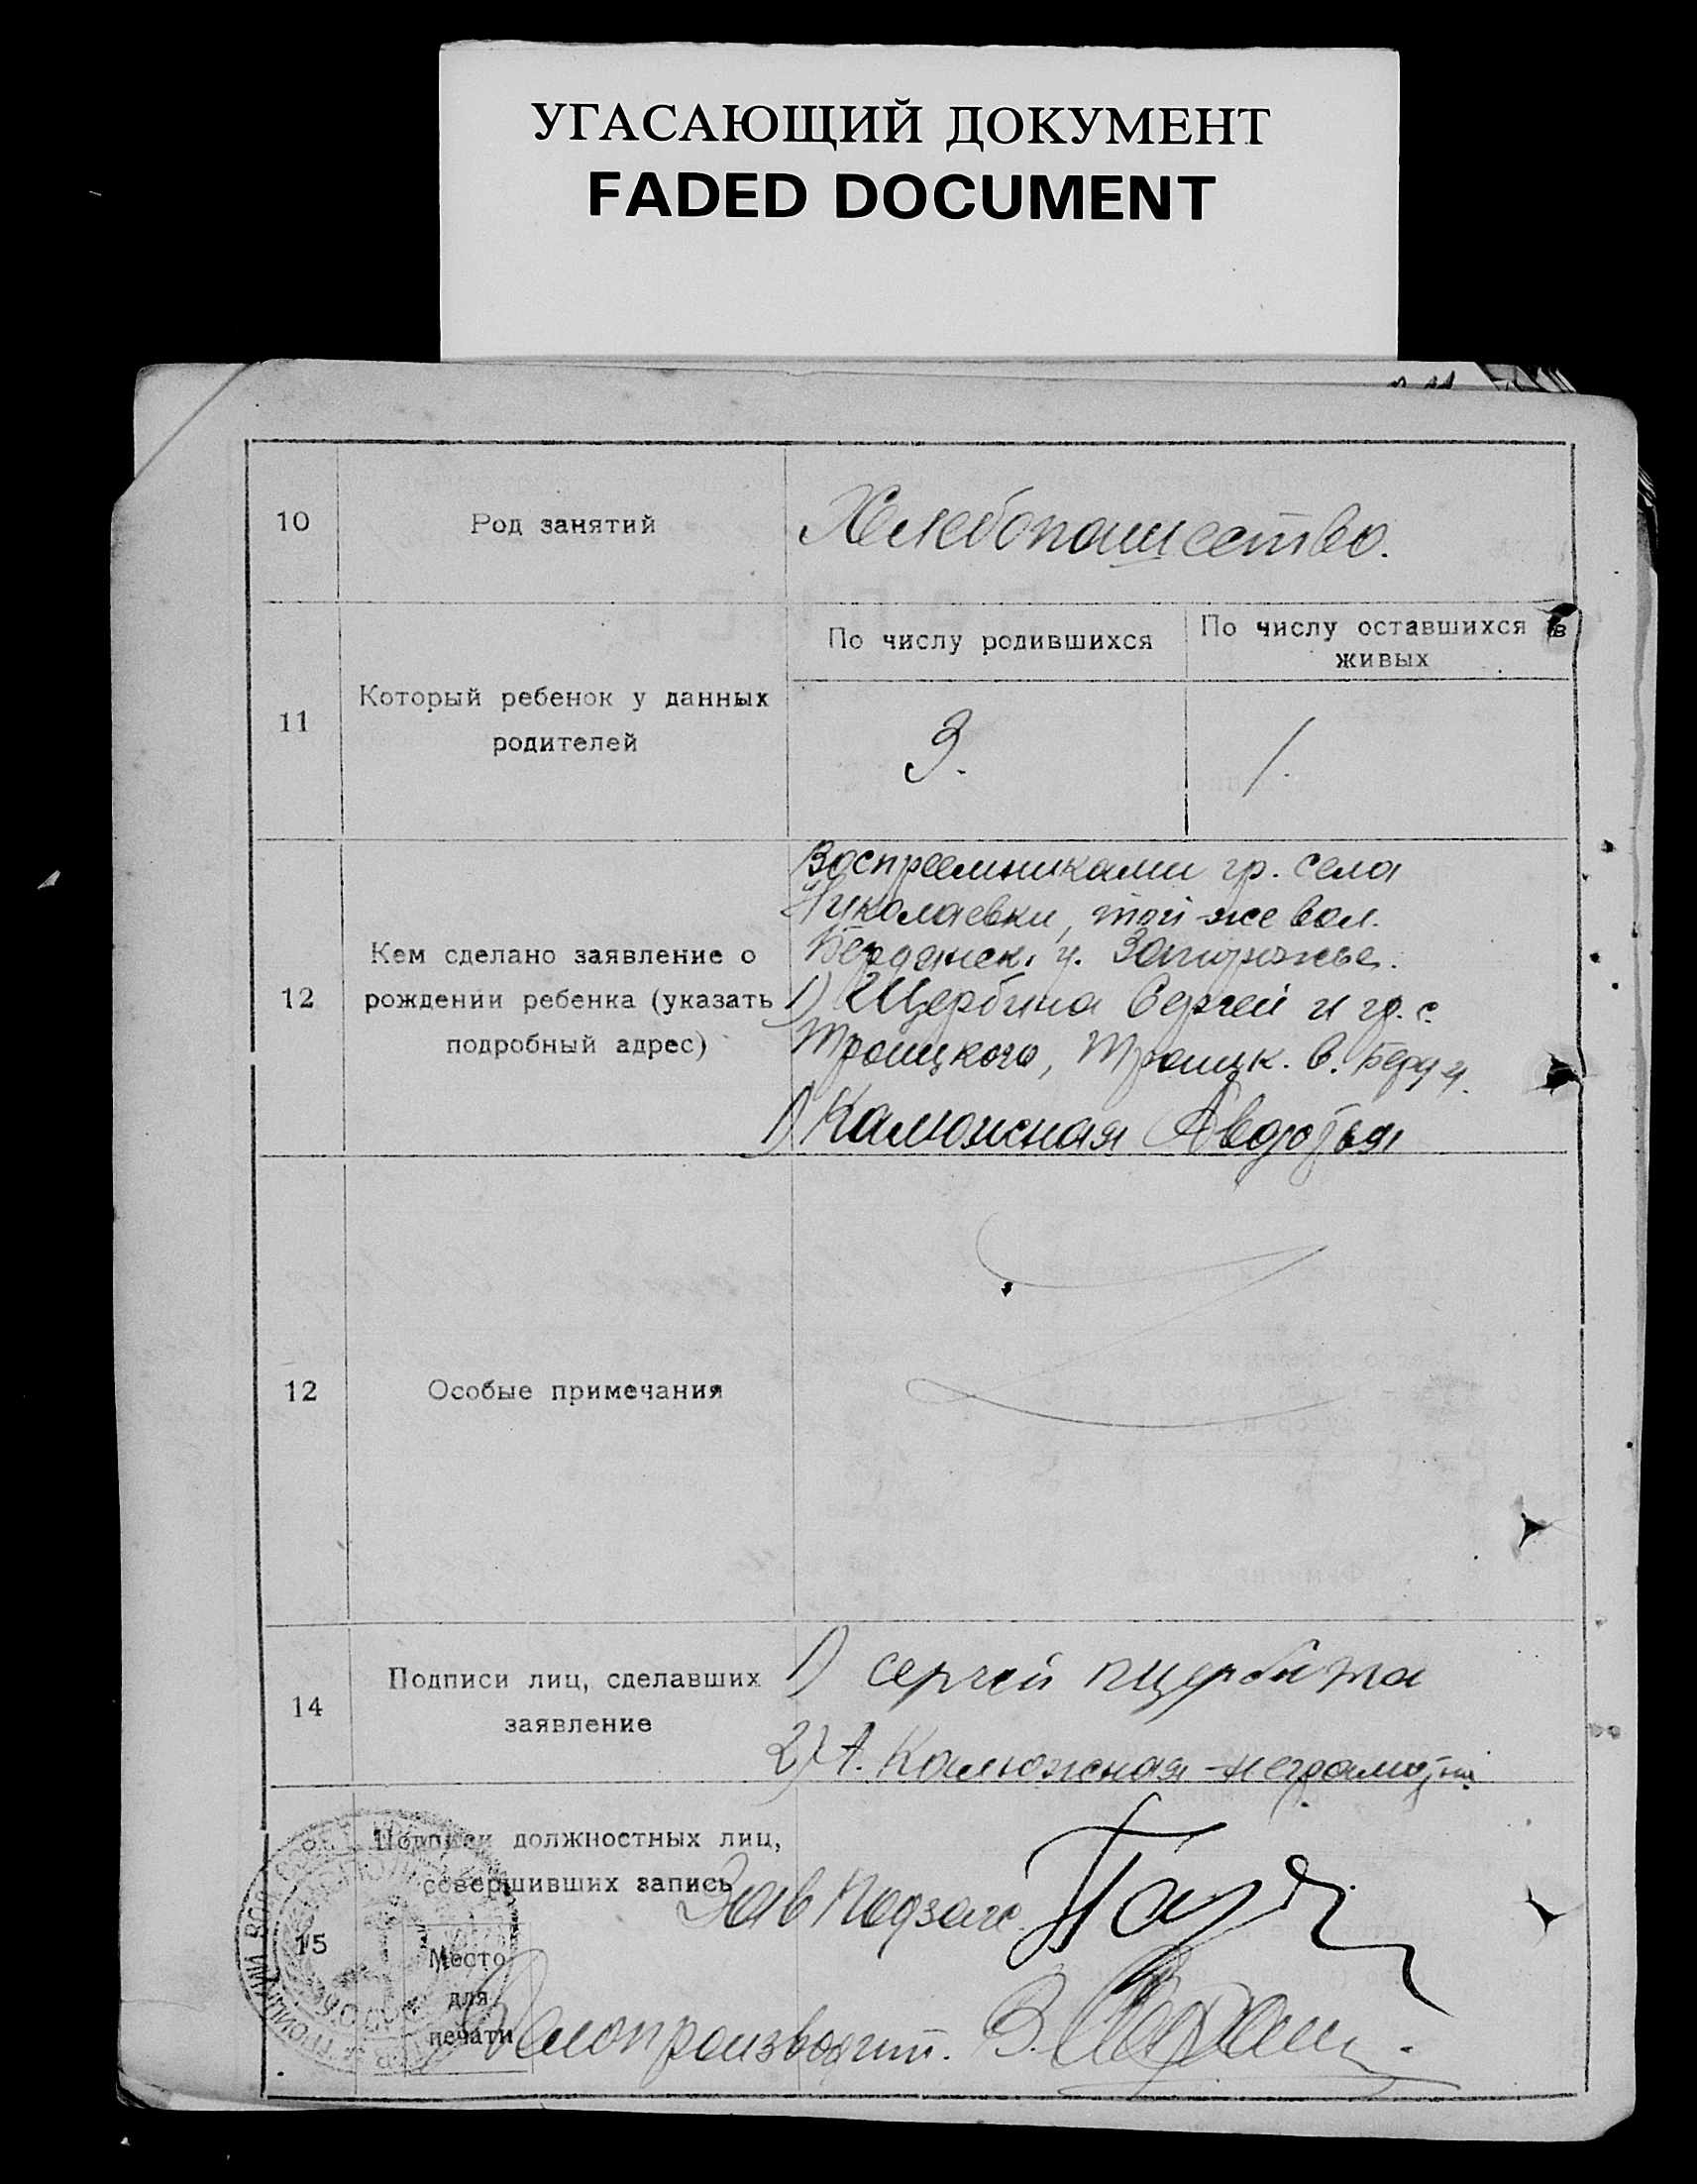 УГАСАЮЩИЙ ДОКУМЕНТ
FADED DOCUMENT
10
Род занятий
Хлебопашество.
11
Который ребенок у данных
родителей
По числу родившихся
По числу оставшихся в
живых
3.
1.
12
Кем сделано заявление о
рождении ребенка (указать
подробный адрес)
Воспреемниками гр. села
Николаевки, той-же вол.
Бердянск. у. Запорожье.
1) Щербина Сергей и гр. с.
Троицкого, Троицк. в. Берд у.
1) Калюжная Авдотья
12
Особые примечания
14
Подписи лиц, сделавших
заявление
1) Сергей щербина
2) А. Калюжная - неграмотна
15
Подписи должностных лиц,
совершивших запись
Место
для
печати
Зав Подзагс
Делопроизводит. В.